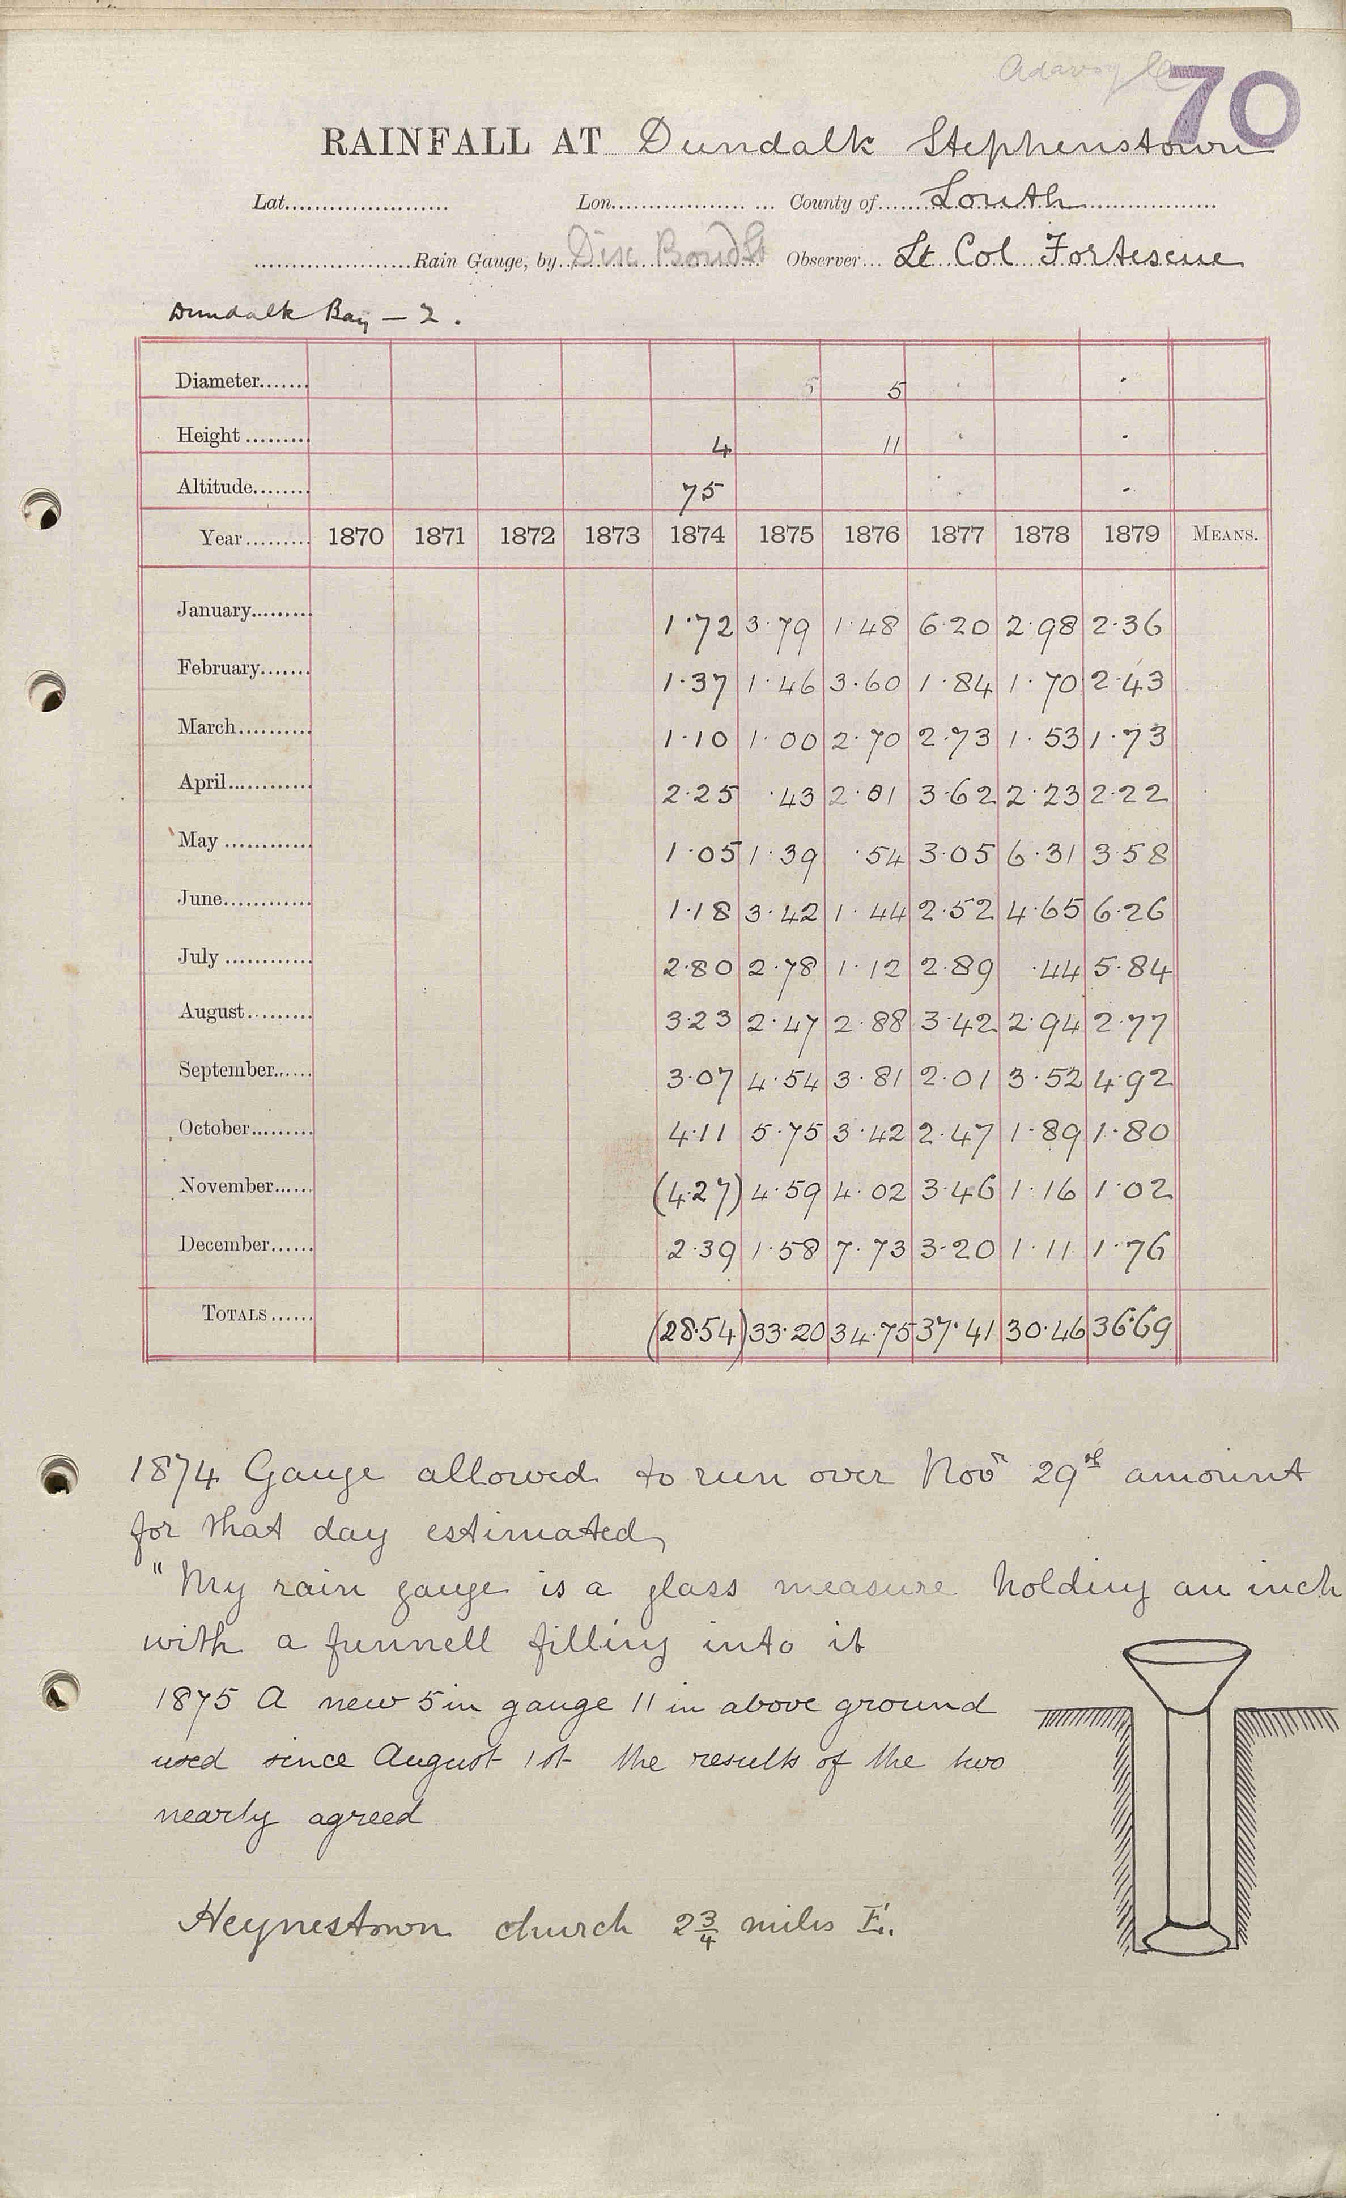 70
RAINFALL AT Dundalk Stephenstown
Lat...................... Lon..................... County of Louth
Rain Gauge, by Observer Lt Col Fortescue
Dundalk Bay — 2.
Diameter....... 5 5 . .
Height......... 4 11 . .
Altitude........ 75 . .
Year......... 1870 1871 1872 1873 1874 1875 1876 1877 1878 1879 MEANS.
January......... 1.72 3.79 1.48 6.20 2.98 2.36
February....... 1.37 1.46 3.60 1.84 1.70 2.43
March.......... 1.10 1.00 2.70 2.73 1.53 1.73
April............ 2.25 .43 2.01 3.62 2.23 2.22
May............ 1.05 1.39 .54 3.05 6.31 3.58
June............ 1.18 3.42 1.44 2.52 4.65 6.26
July............ 2.80 2.78 1.12 2.89 .44 5.84
August......... 3.23 2.47 2.88 3.42 2.94 2.77
September...... 3.07 4.54 3.81 2.01 3.52 4.92
October......... 4.11 5.75 3.42 2.47 1.89 1.80
November...... (4.27) 4.59 4.02 3.46 1.16 1.02
December...... 2.39 1.58 7.73 3.20 1.11 1.76
TOTALS...... (28.54) 33.20 34.75 37.41 30.46 36.69
1874 Gauge allowed to run over Novr 29th amount
for that day estimated
"My rain gauge is a glass measure holding an inch
with a funnell filling into it
1875 A new 5 in gauge 11 in above ground
used since August 1st the results of the two
nearly agreed
Heynestown church 2 3/4 miles E.